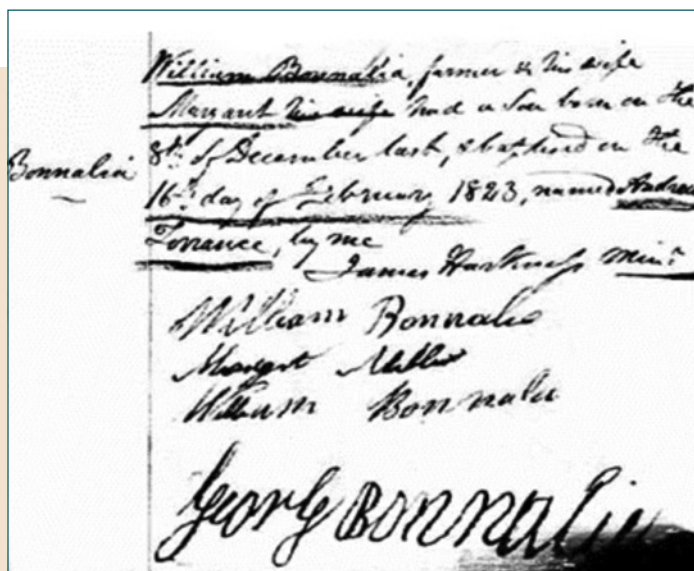 William Bonnalia, farmer & his wife
Margaret his wife had a son born on the
8th of December last, & baptised on the
Bonnalia
16th day of February 1823, named Andrew
Torrance, by me
James Harkness Minr
William Bonnalie
Margret Miller
William Bonnalie
George Bonnalie